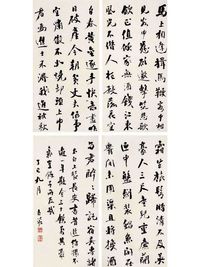 馬上相逢揖馬鞭客中相
見客中憐欲邀擊筑悲歌
飲正值傾家無酒錢江東
風光不借人枉殺落花空
自春黃金逐手快意盡昨
日破產今朝貧丈夫何事
空嘯傲不如燒卻頭上巾
君為進士不得進我被秋
霜生旅鬢時清不及英
豪人三尺童兒唾廉藺
匣中盤劍裝䱜魚閒在腰
間未用渠且將換酒
與君醉醉歸託宿吳專諸
九月